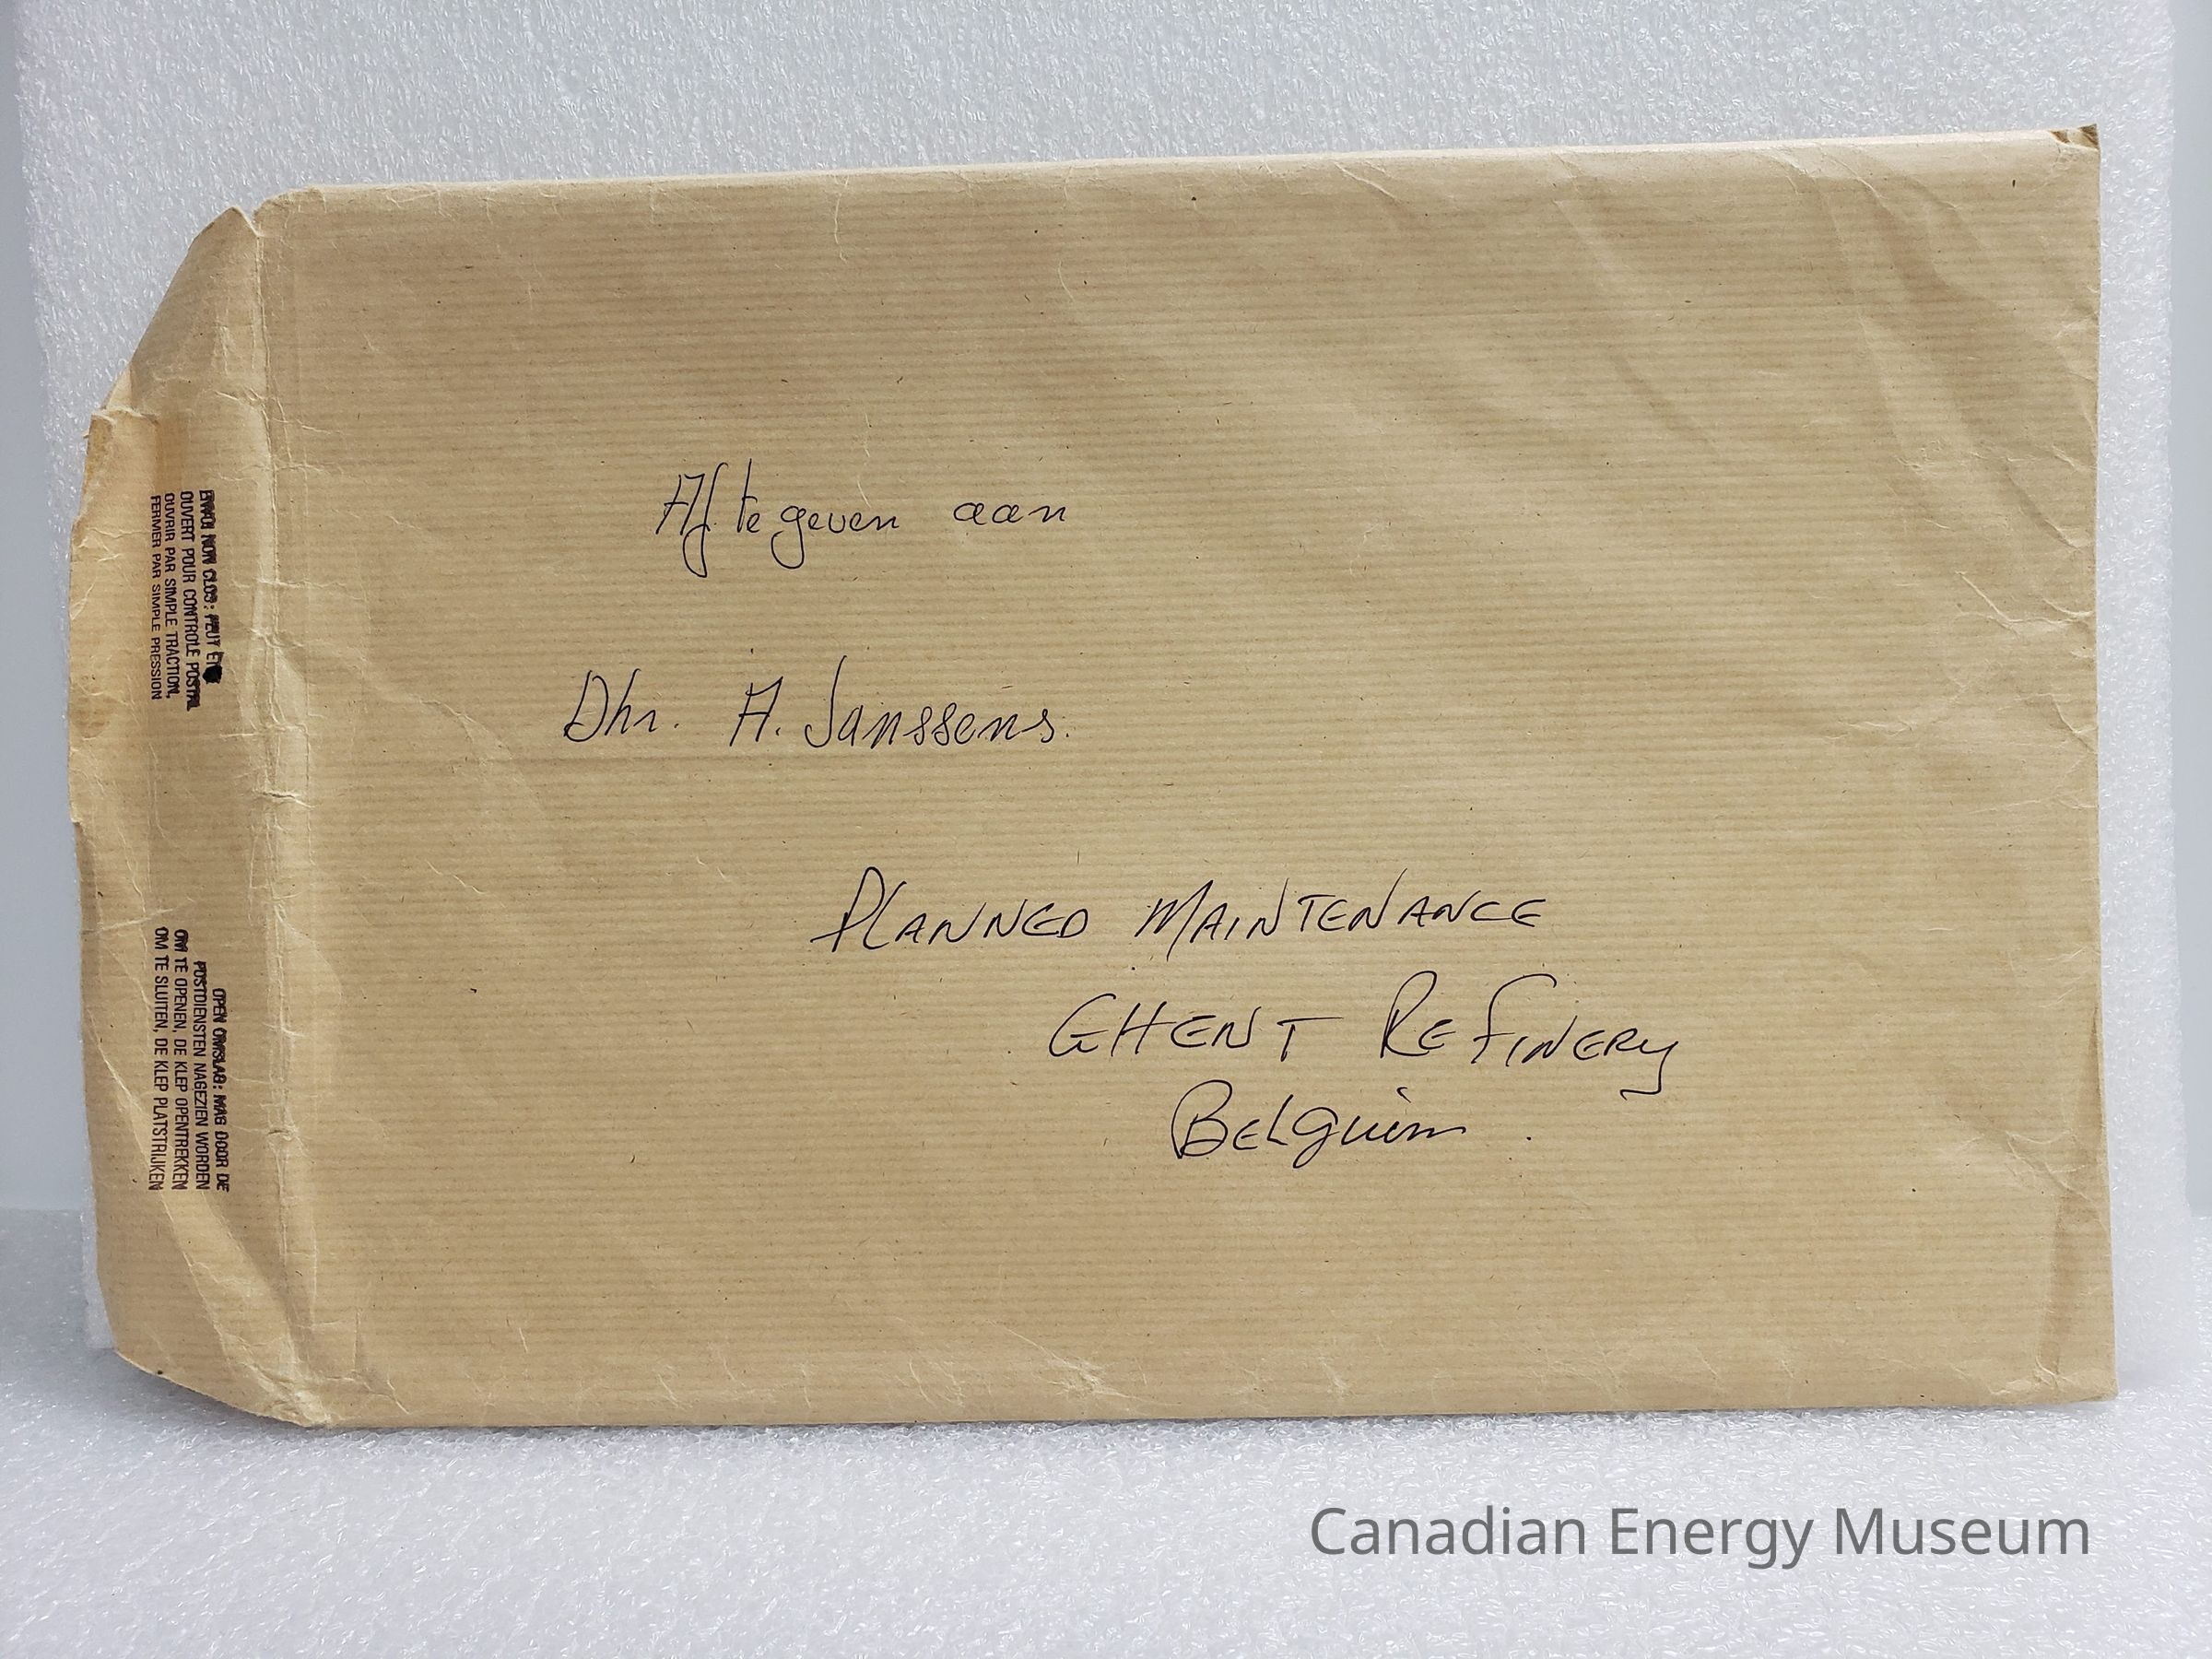 Af te geven aan
Dhr. A. Janssens.
PLANNED MAINTENANCE
GHENT REFINERY
BELgium.
ENVOI NON CLOS: PEUT ETRE
OUVERT POUR CONTROLE POSTAL
OUVRIR PAR SIMPLE TRACTION.
FERMER PAR SIMPLE PRESSION
OPEN OMSLAG: MAG DOOR DE
POSTDIENSTEN NAGEZIEN WORDEN
OM TE OPENEN, DE KLEP OPENTREKKEN
OM TE SLUITEN, DE KLEP PLATSTRIJKEN
Canadian Energy Museum